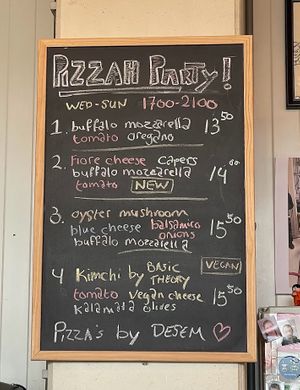 PIZZAH PARTY!
WED-SUN 1700-2100
1. buffalo mozzarella 13⁵⁰
tomato oregano
2. Fiore cheese capers
buffalo mozzarella 14⁰⁰
tomato NEW
3. oyster mushroom
blue cheese balsamico onions 15⁵⁰
buffalo mozzarella
VEGAN
4 Kimchi by BASIC THEORY
tomato vegan cheese 15⁵⁰
kalamata olives
PIZZA'S by DESEM